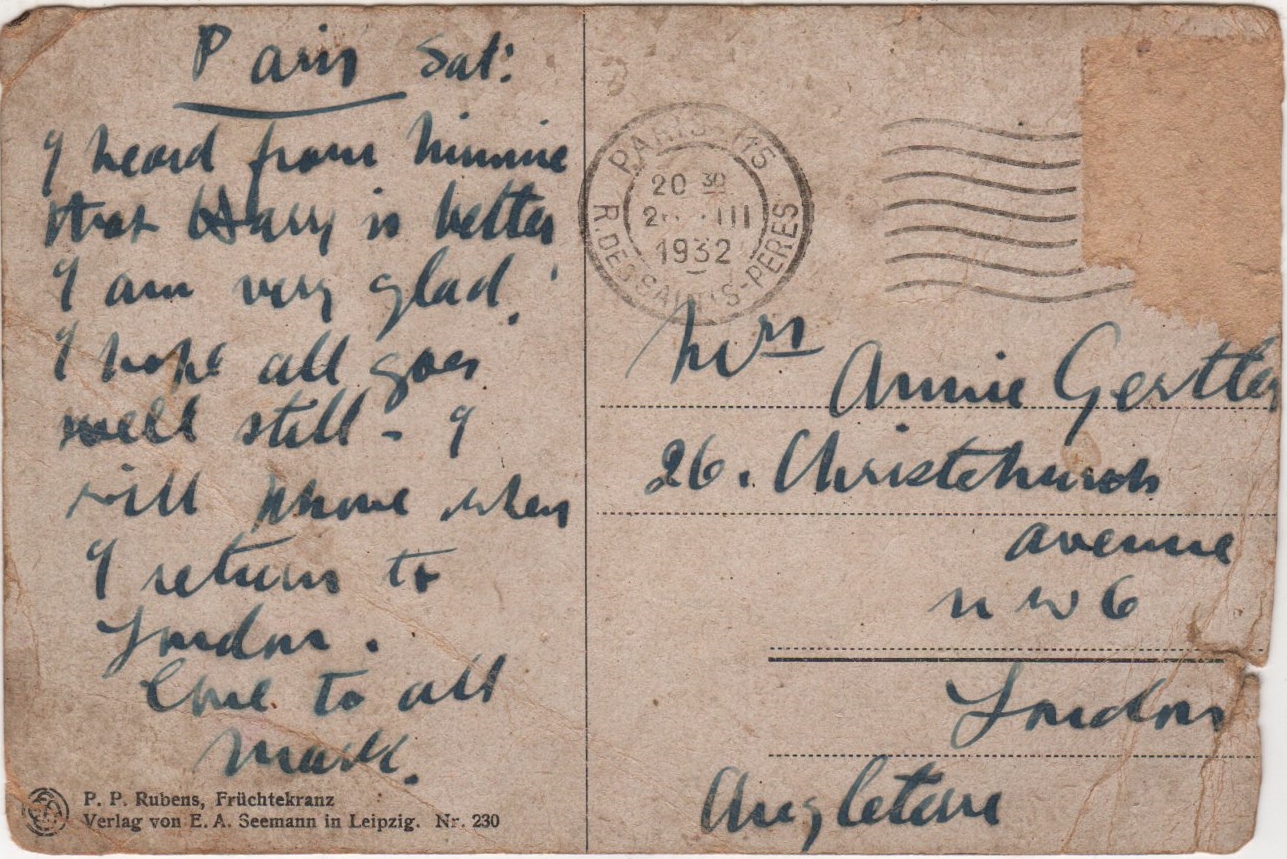 Paris Sat:
I heard from Minnie
that Harry is better
I am very glad.
I hope all goes
well still - I
will phone when
I return to
London.
Love to all
Mark.
P. P. Rubens, Früchtekranz
Verlag von E. A. Seemann in Leipzig. Nr. 230
PARIS 115
20 30
2 III
1932
R. DES SAINTS-PERES
Mrs Annie Gertler
26. Christchurch
avenue
N W 6
London
Angleterre